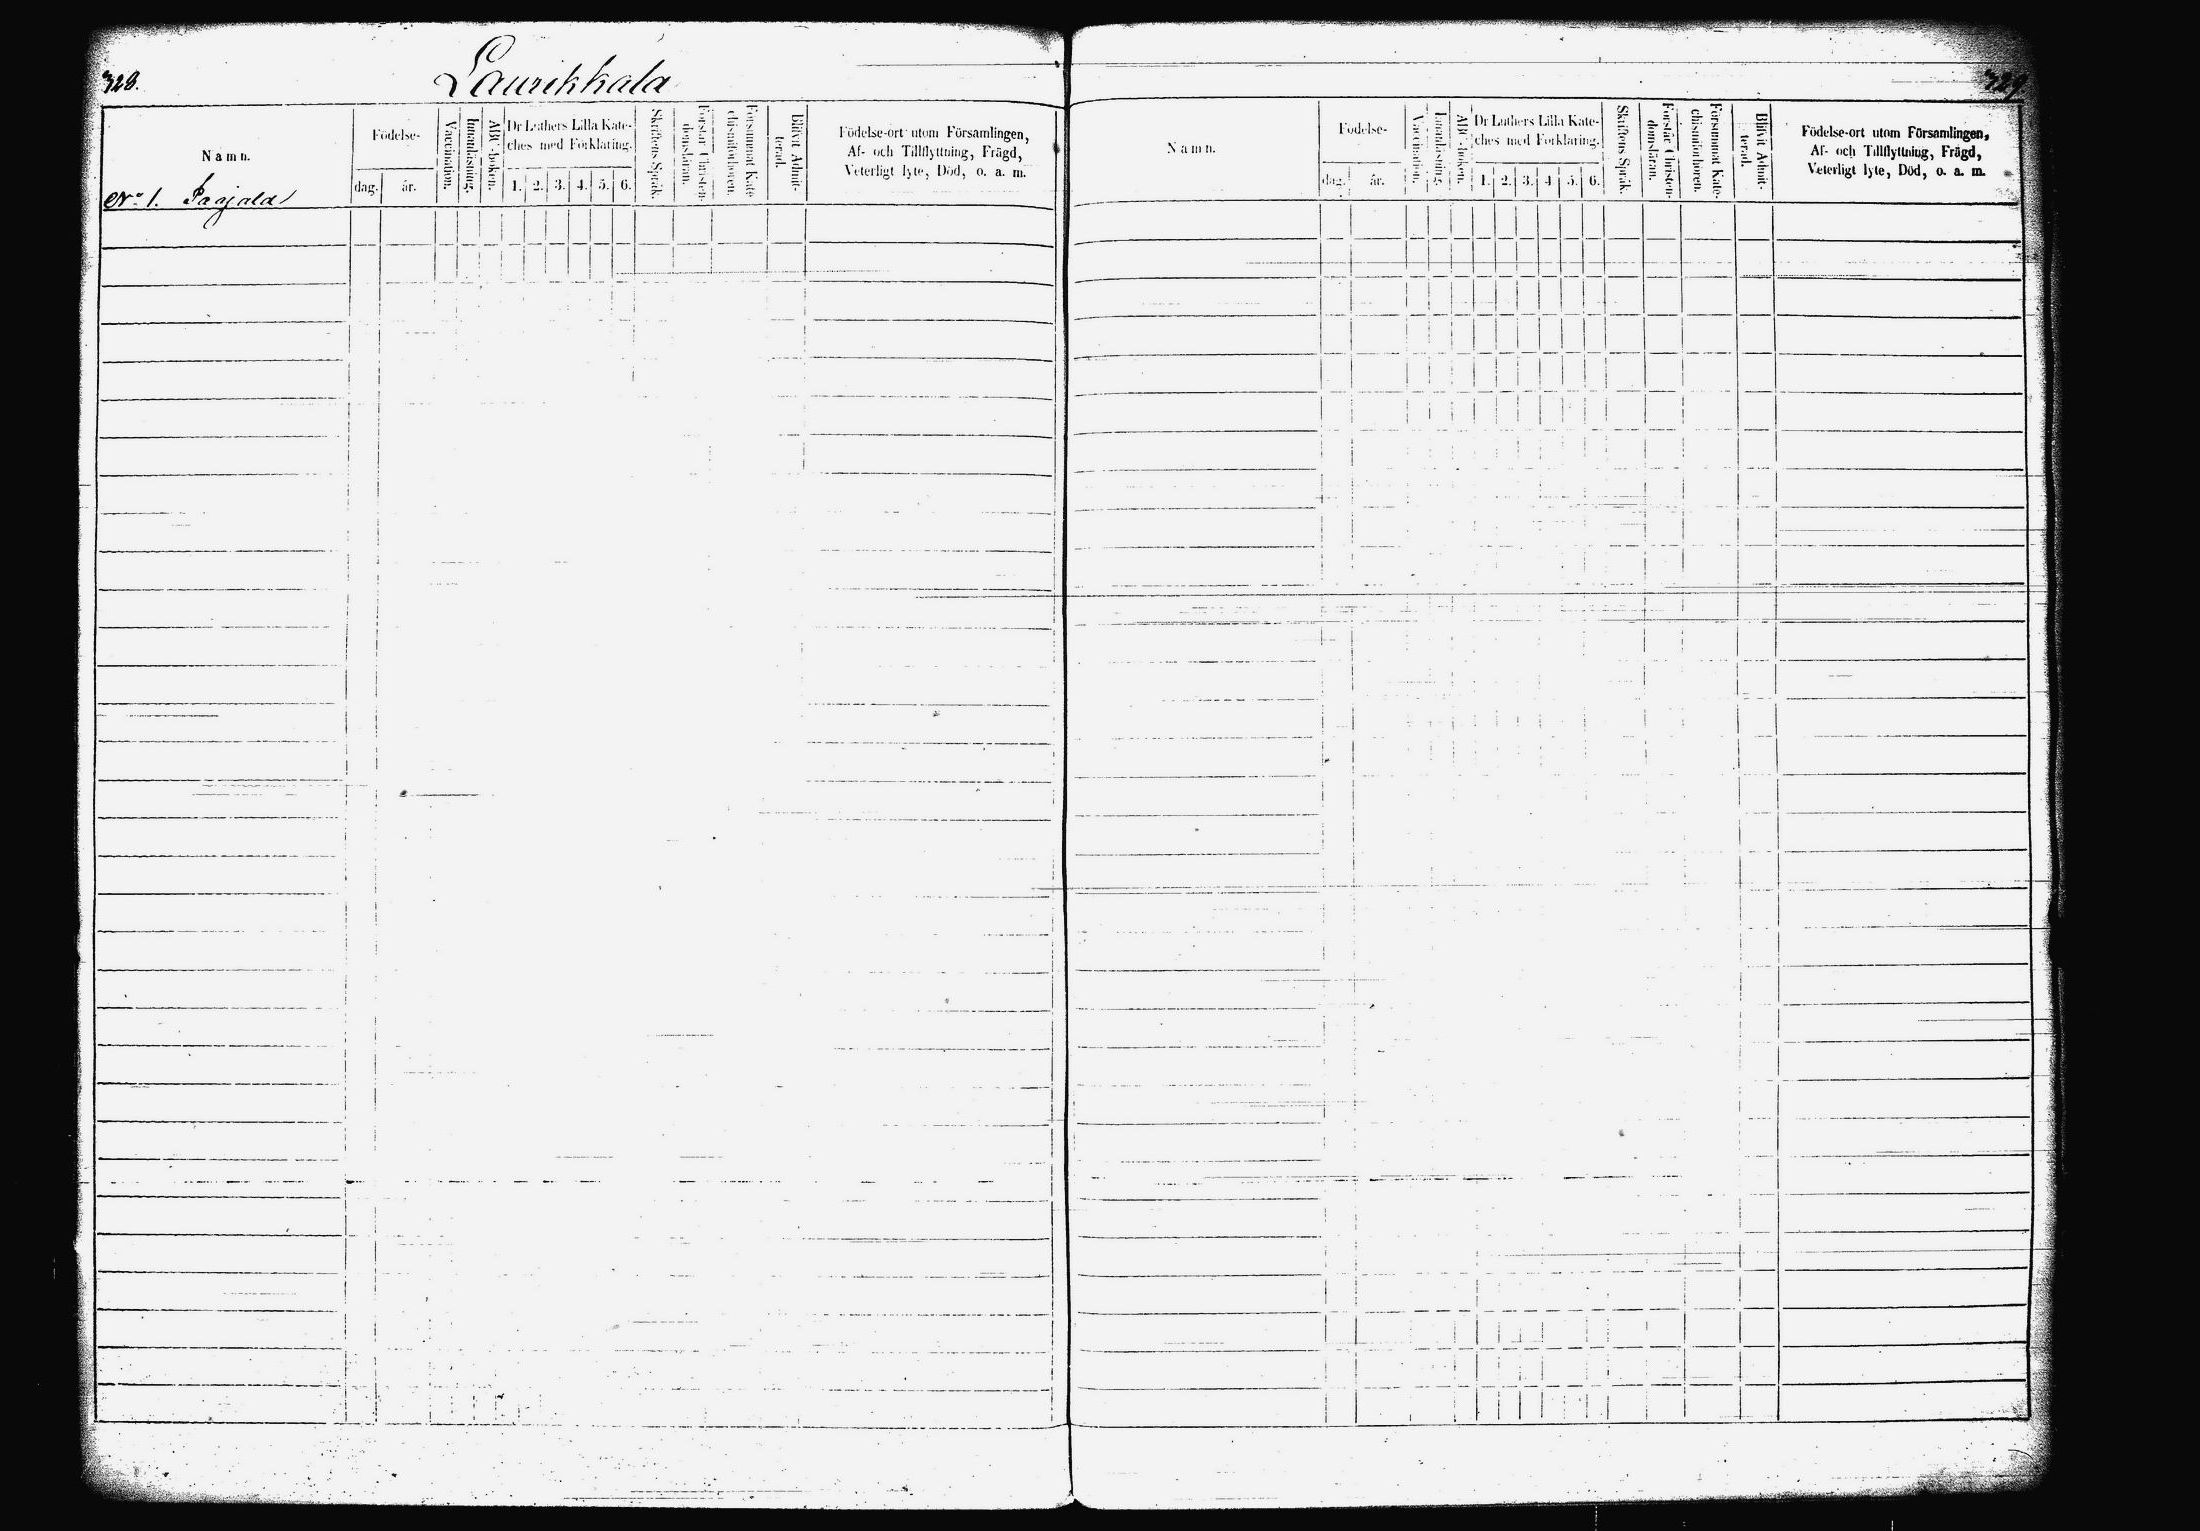 328.
Laurikkala
Namn.
Födelse-
dag.
år.
Vaccination.
Innanläsning.
ABC-boken.
Dr Luthers Lilla Kate-
ches med Förklaring.
1. 2. 3. 4. 5. 6.
Skriftens Språk.
Förstår Christen-
domsläran.
Försummat Kate-
chismiförhören.
Blifvit Admit-
terad.
Födelse-ort utom Församlingen,
Af- och Tillflyttning, Frägd,
Veterligt lyte, Död, o. a. m.
No 1.
329
Namn.
Födelse-
dag.
år.
Vaccination.
Innanläsning.
ABC-boken.
Dr Luthers Lilla Kate-
ches med Förklaring.
1. 2. 3. 4. 5. 6.
Skriftens Språk.
Förstår Christen-
domsläran.
Försummat Kate-
chismiförhören.
Blifvit Admit-
terad.
Födelse-ort utom Församlingen,
Af- och Tillflyttning, Frägd,
Veterligt lyte, Död, o. a. m.